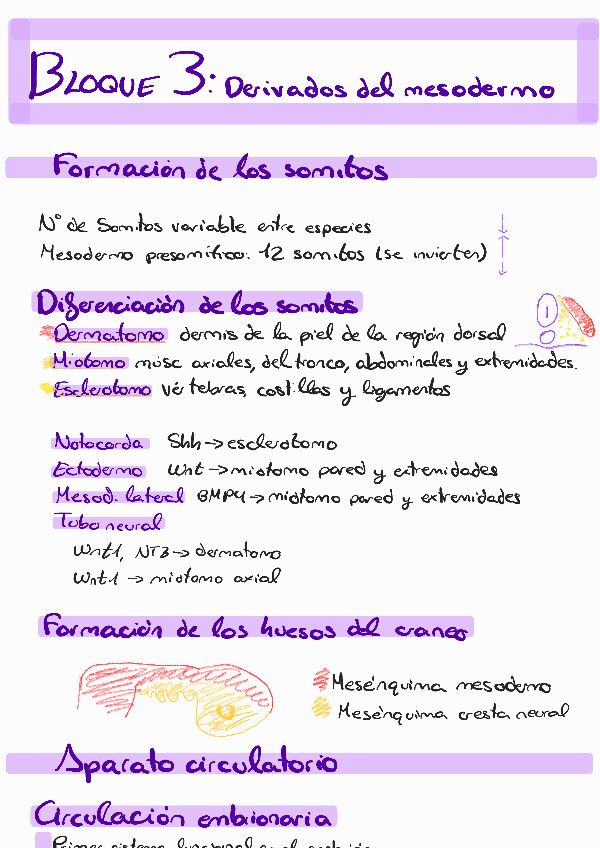 BLOQUE 3: Derivados del mesodermo
Formación de los somitos
Nº de Somitos variable entre especies
Mesodermo presomítico: 12 somitos (se invierten)
Diferenciación de los somitos
Dermatomo dermis de la piel de la región dorsal
Miotomo músc axiales, del tronco, abdominales y extremidades.
Esclerotomo vértebras, costillas y ligamentos
Notocorda Shh → esclerotomo
Ectodermo Wnt → miotomo pared y extremidades
Mesod. lateral BMP4 → miotomo pared y extremidades
Tubo neural
Wnt1, NT3 → dermatomo
Wnt1 → miotomo axial
Formación de los huesos del craneo
Mesénquima mesodermo
Mesénquima cresta neural
Aparato circulatorio
Circulación embrionaria
Primer sistema funcional en el